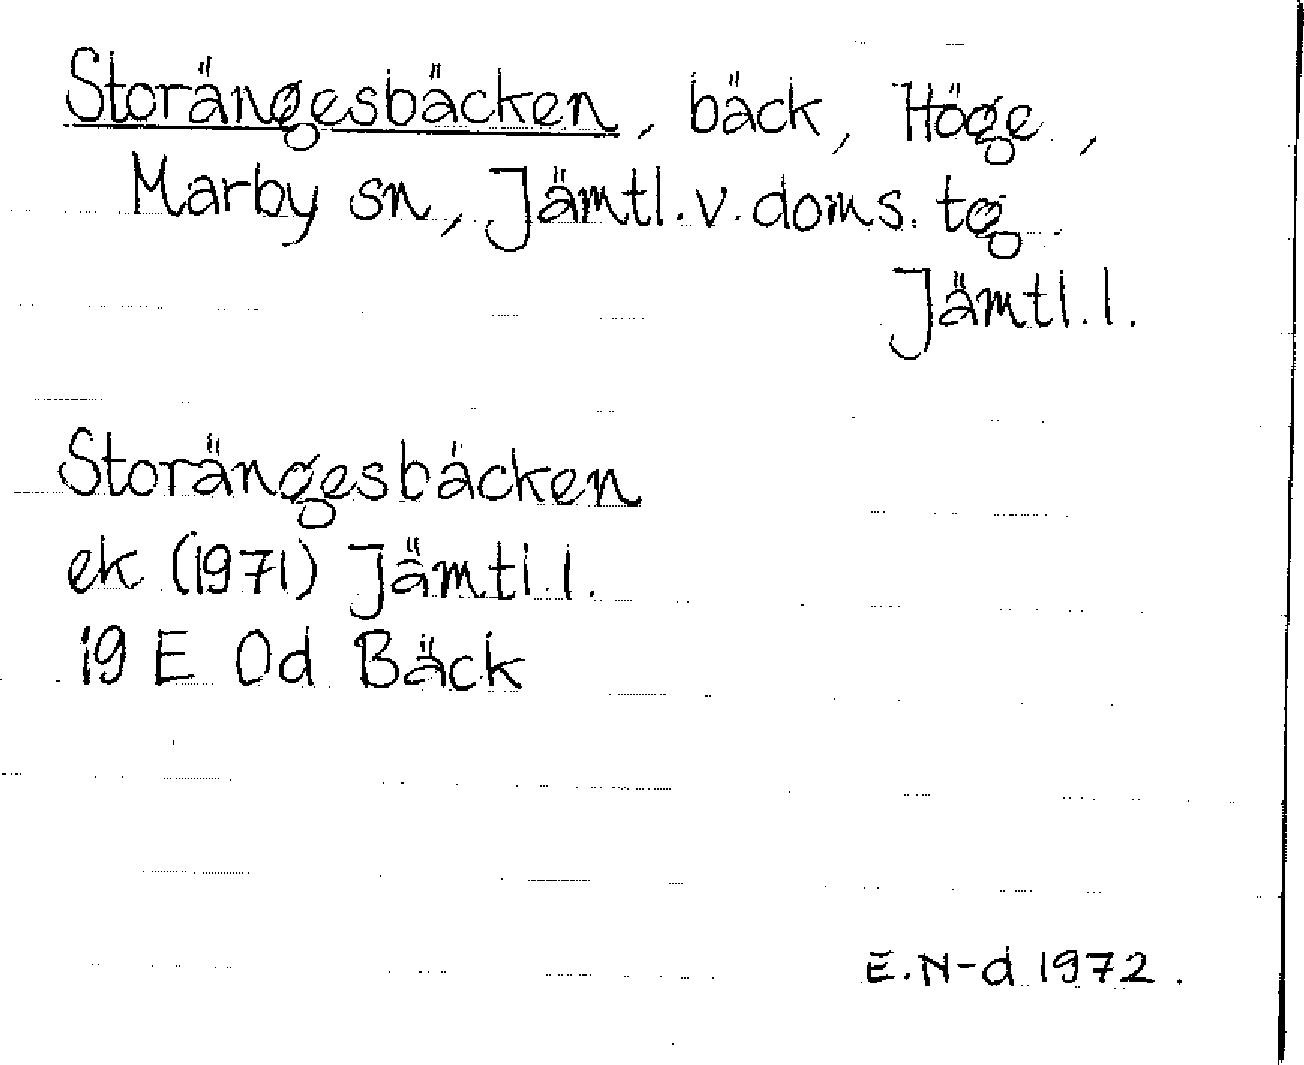 Storängesbäcken, bäck, Höge,
Marby sn, Jämtl. v. doms. tg
Jämtl. l.
Storängesbäcken
ek (1971) Jämtl. l.
19 E 0d Bäck
E. N-d 1972.